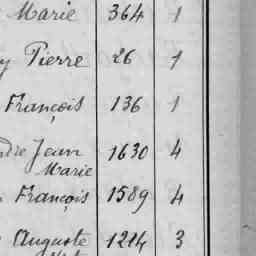 Marie 364 1
y Pierre 26 1
François 136 1
dre Jean 1630 4
Marie
François 1589 4
Auguste 1214 3